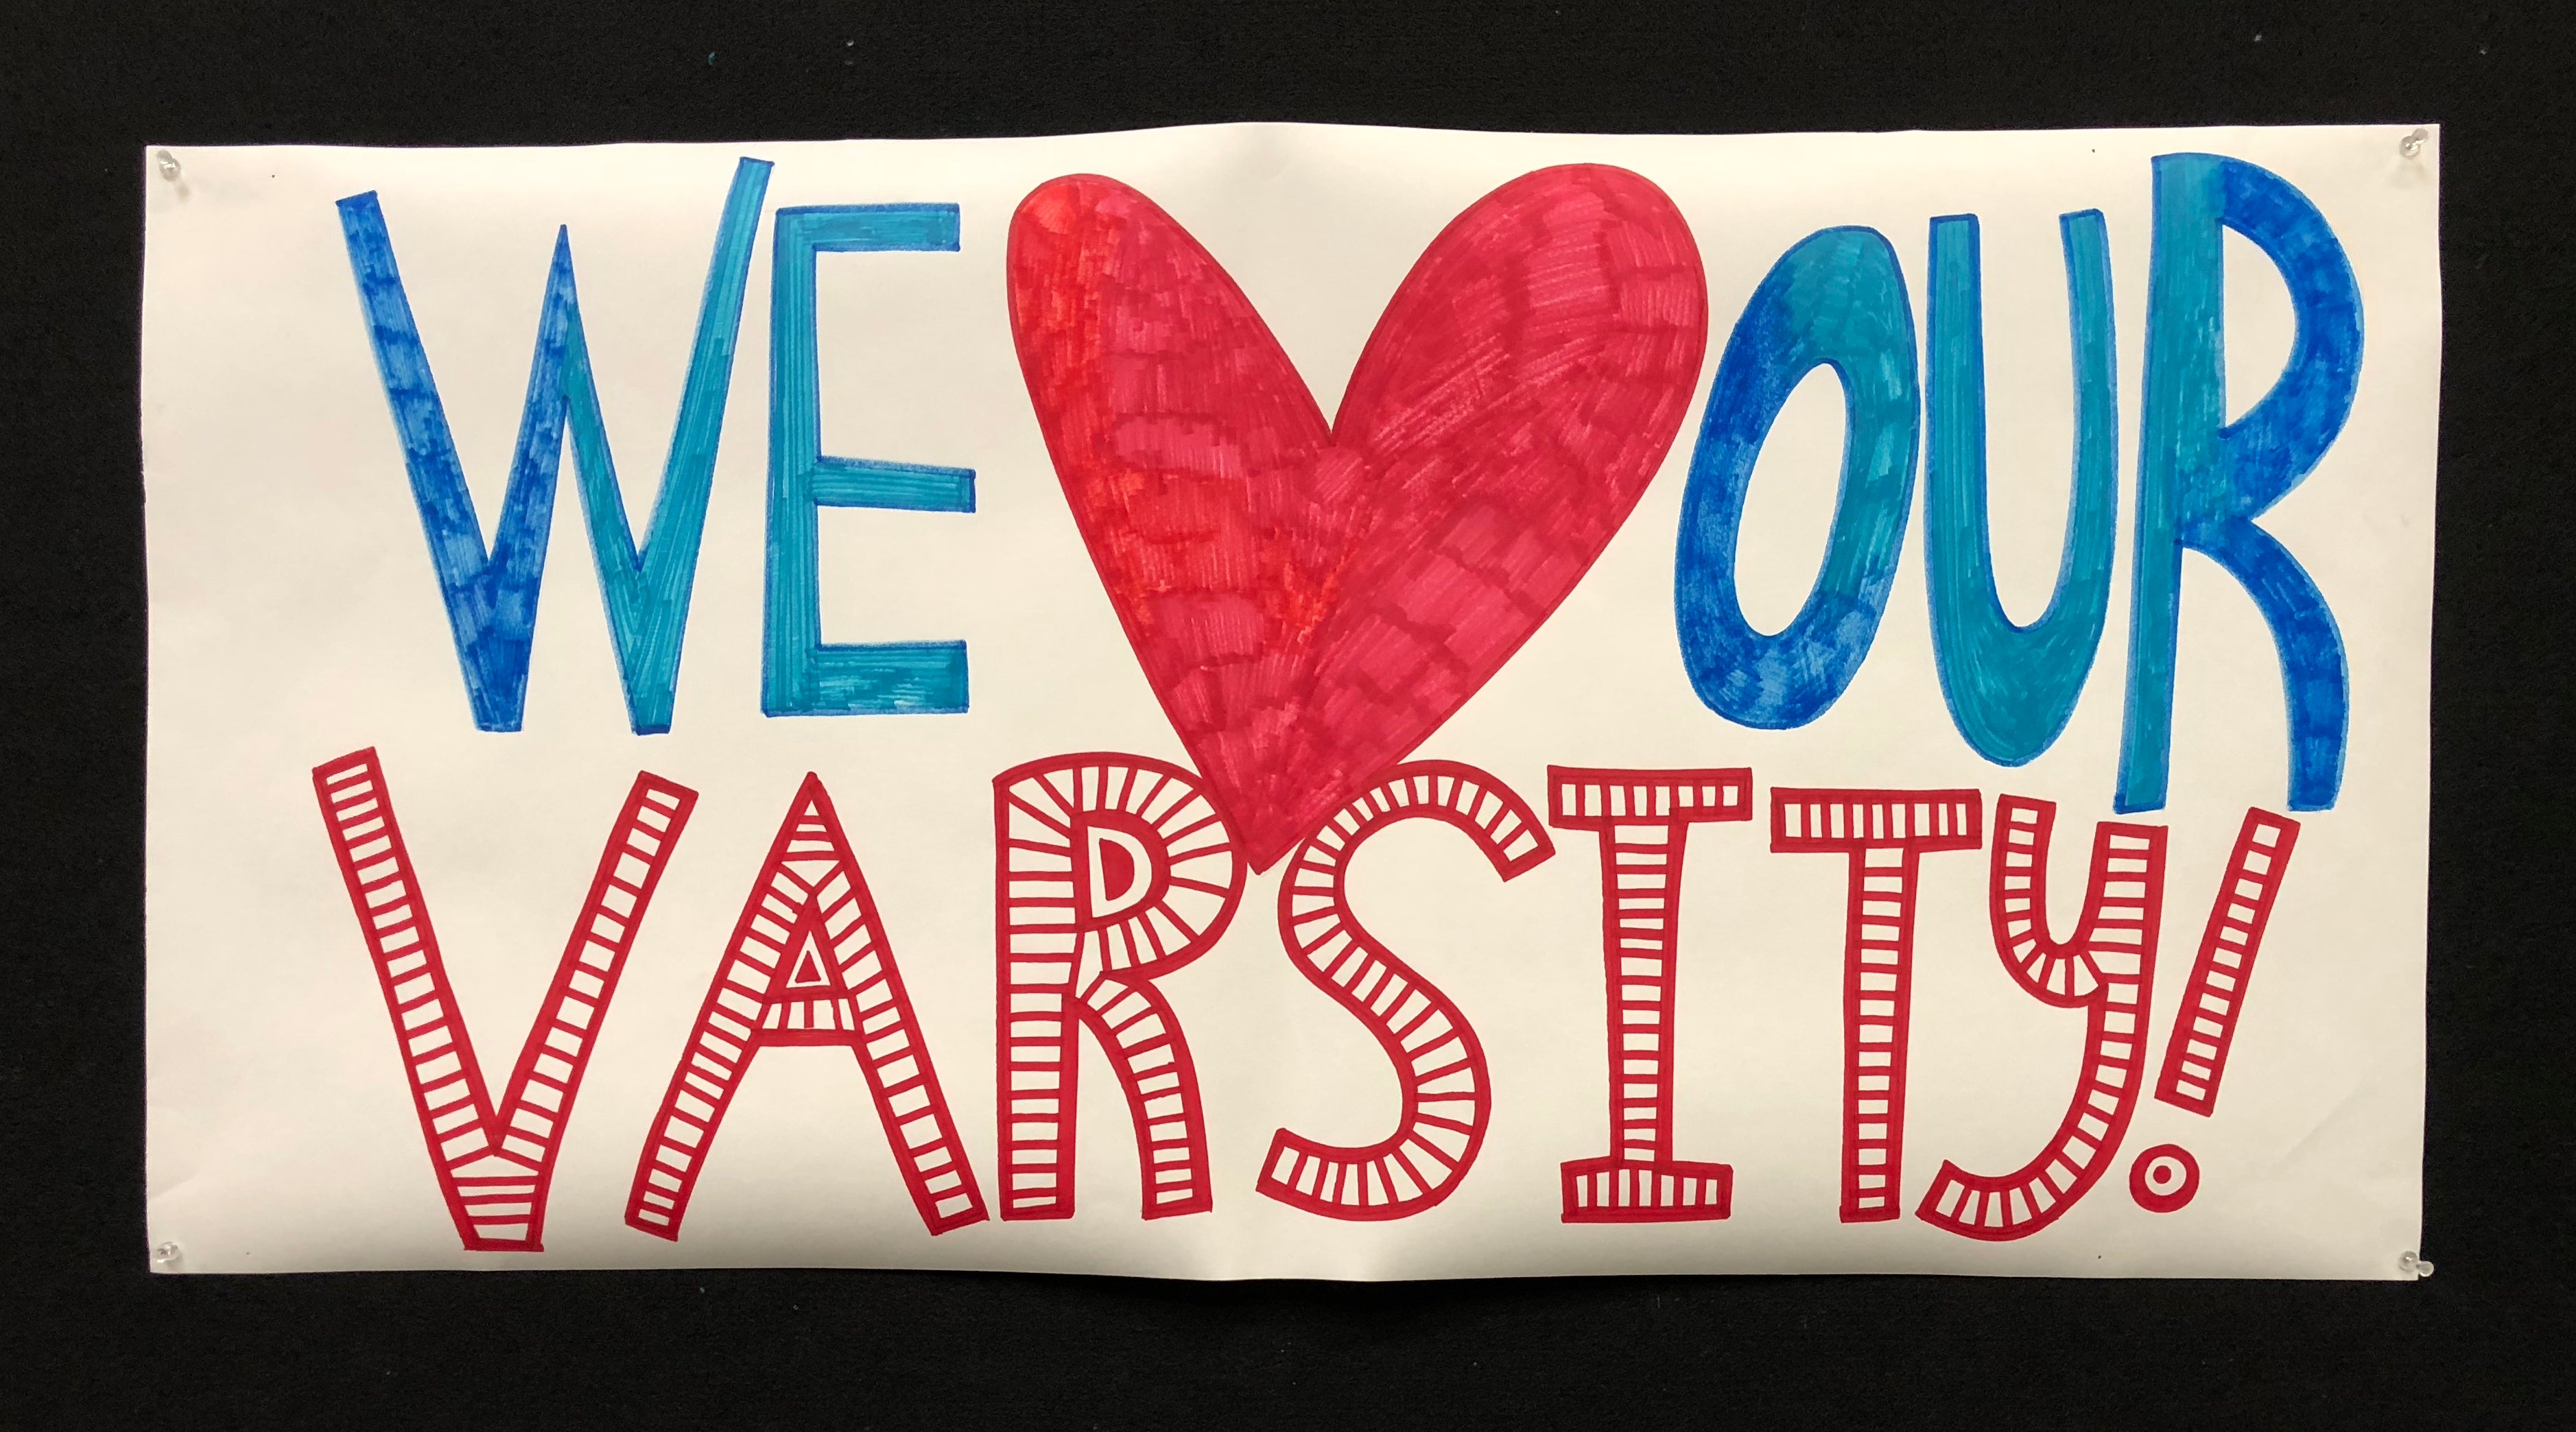 WE ❤ OUR
VARSITY!